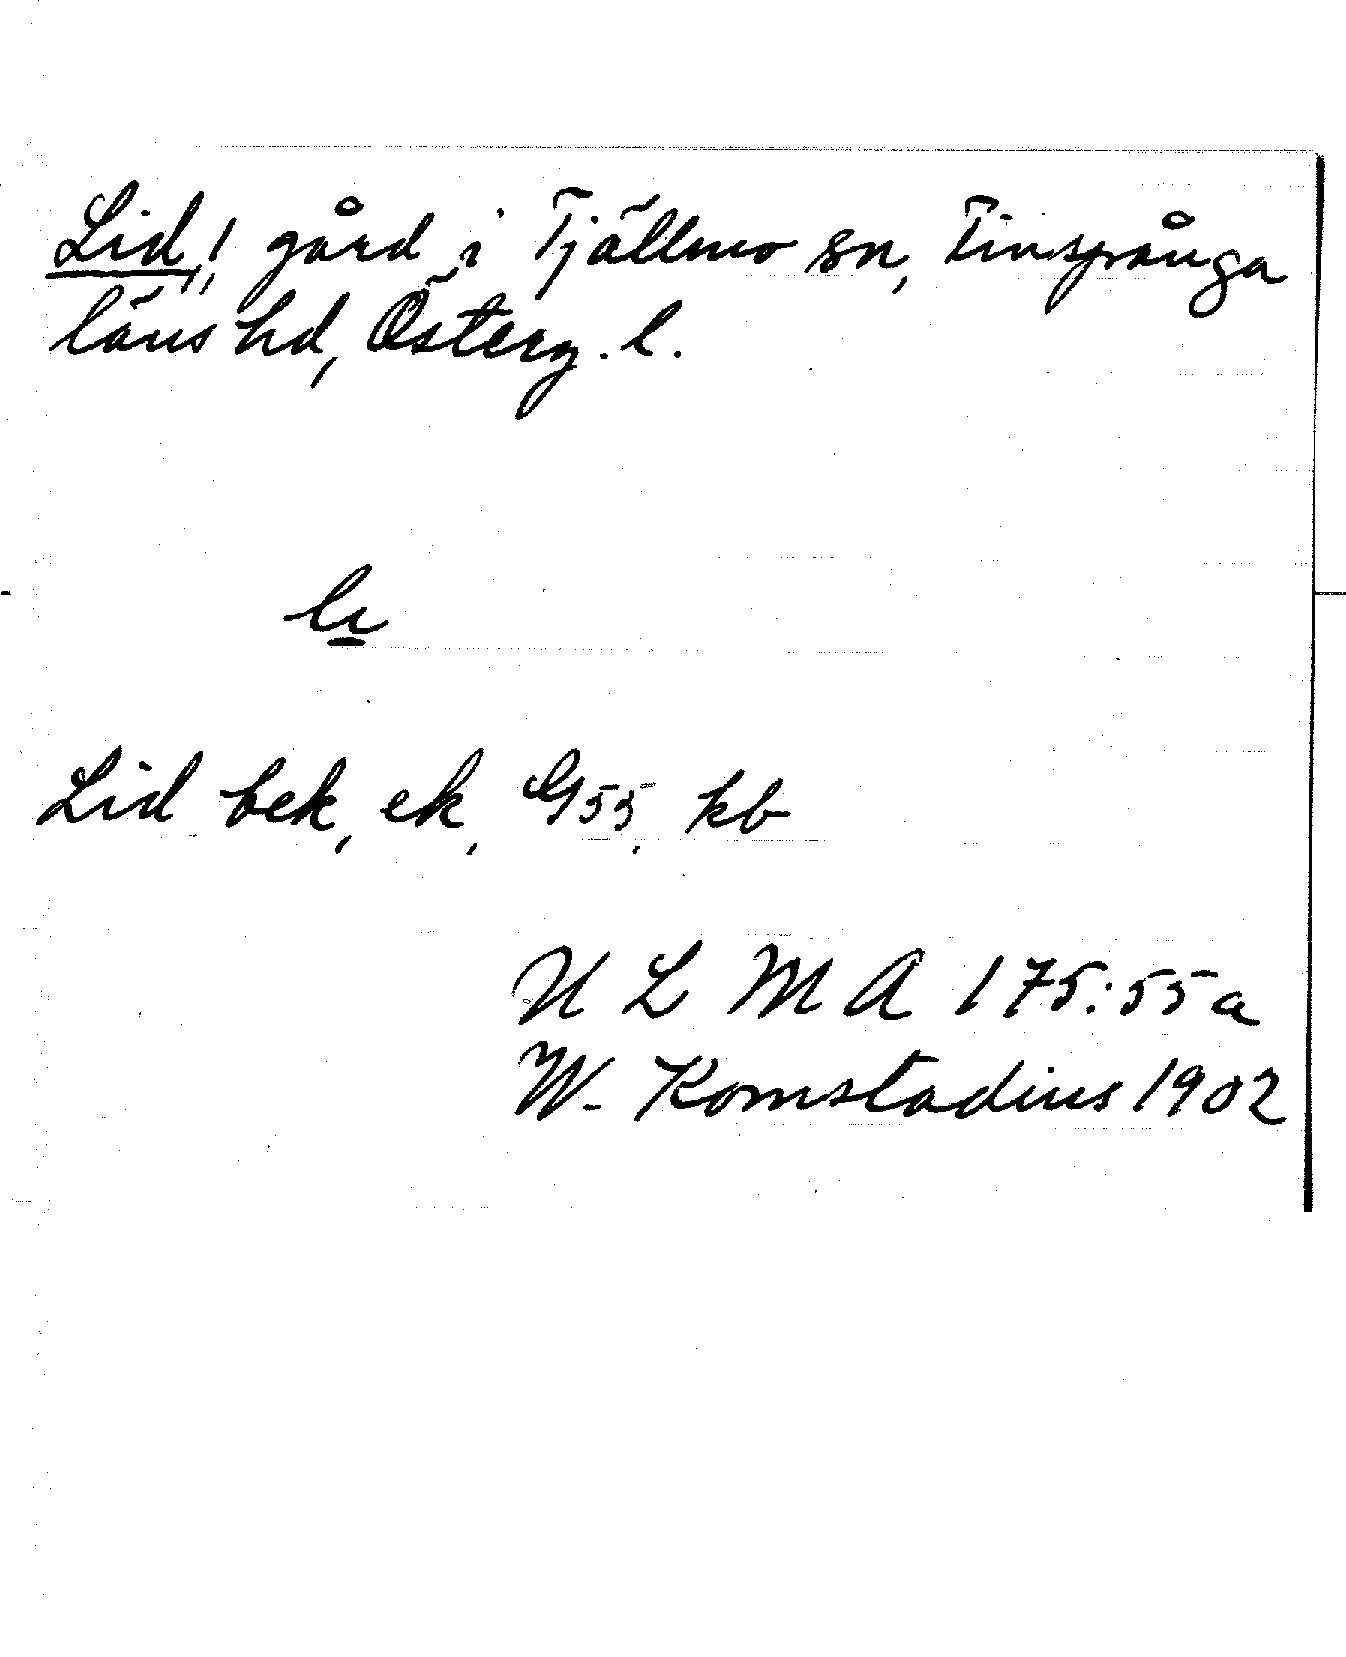 Lid,! gård i Tjällmo sn, Finspånga
läns hd, Österg. l.
li
Lid bek, ek, G55, kb
U L M A 175:55a
W. Komstadius 1902